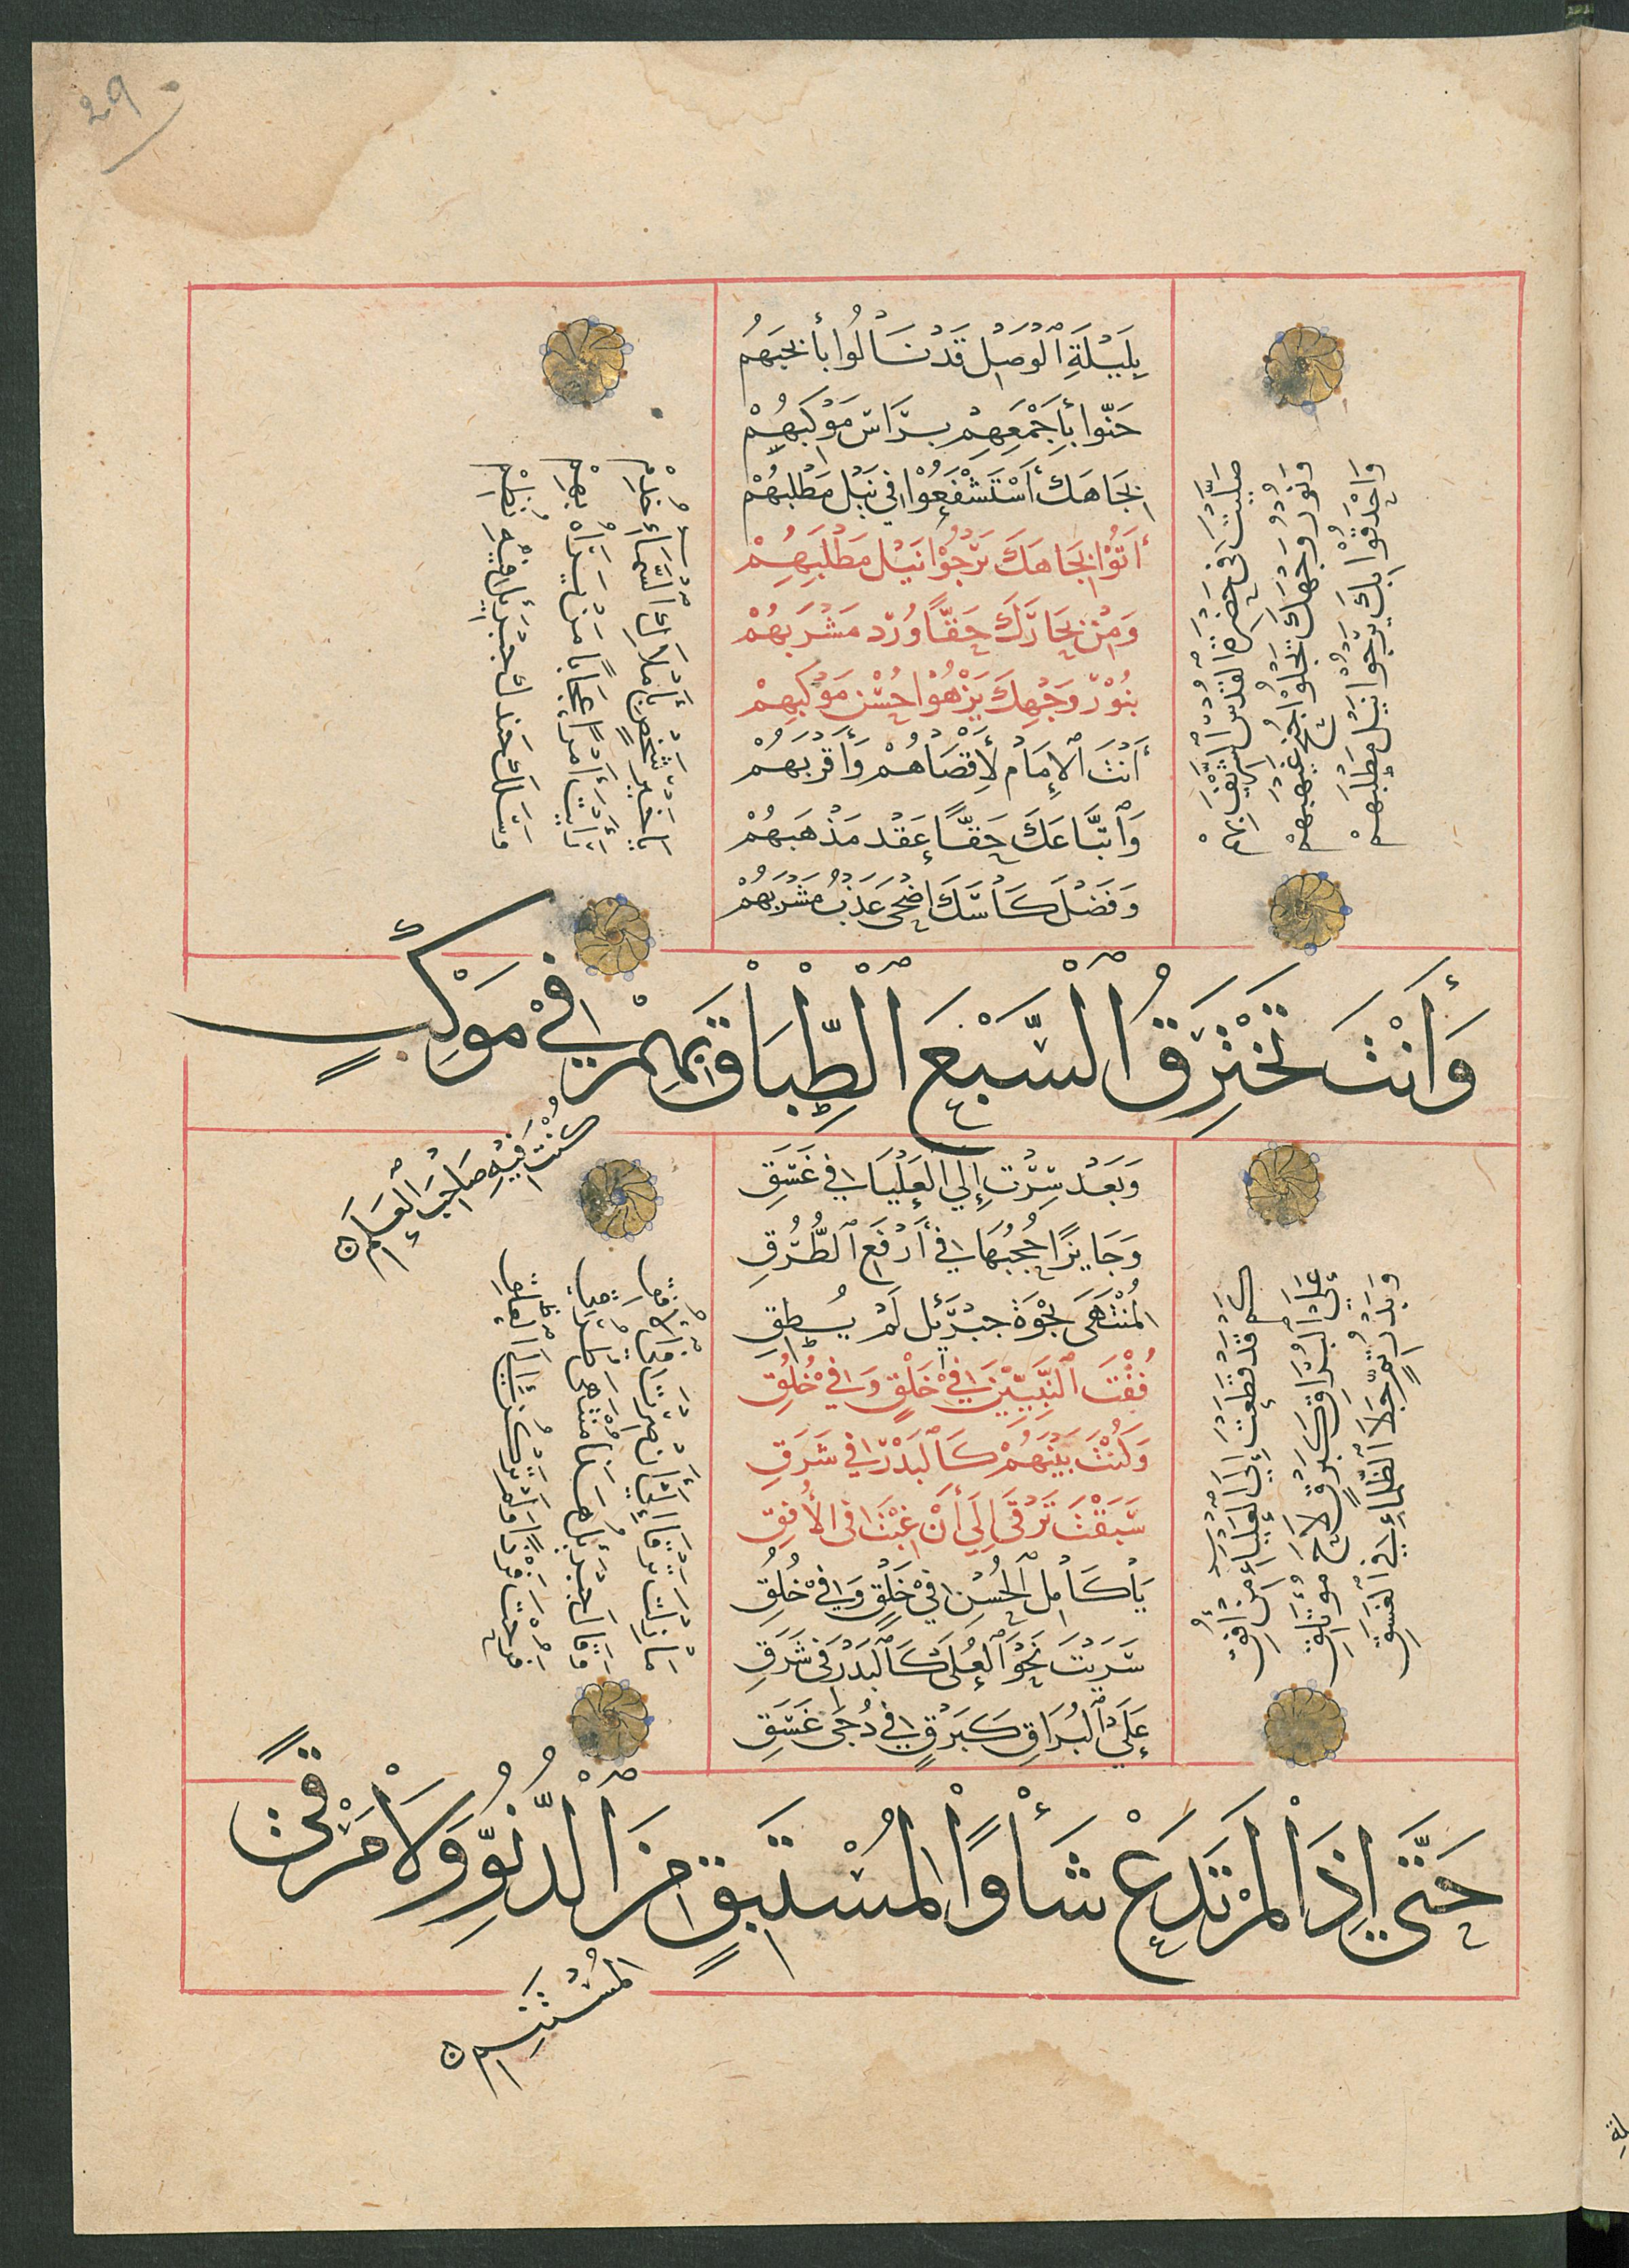 29
بِلَيْلَةِ ٱلْوَصْلِ قَدْ نَالُوا بِأَنْجُبِهُمْ
حَثّوا بِأَجْمَعِهِمْ مَوْكَبِهُمْ
بِجَاهِكَ ٱسْتَشْفَعُوْا فِي نَيْلِ مَطْلَبِهُمْ
أَتَوْا بِجَاهِكَ تَرْجُوْا نَيْلَ مَطْلَبِهِمْ
وَمِنْ بِحَارِكَ حَقًّا وُرْدُ مَشْرَبِهُمْ
بِنُوْرِ وَجْهِكَ يَزْهُوْا حُسْنُ مَوْكَبِهِمْ
أَنْتَ ٱلْإِمَامُ لِأَقْصَاهُمْ وَأَقْرَبِهُمْ
وَٱتِّبَاعَكَ حَقًّا عَقْدُ مَذْهَبِهُمْ
وَفَضْلُ كَأْسِكَ اضْحَى عَذْبُ مَشْرَبِهُمْ
صَلَّيْتَ فِي حَضْرَةِ الْقُدْسِ الشَّرِيْفِ بِهِمْ
وَنُورُ وَجْهِكَ تَجْلُوْا جُنْحَ غَيْهَبِهِمْ
وَاحْدَقُوْا بِكَ يَرْجُوا نَيْلَ مَطْلَبِهِمْ
يَا خَيْرَ شَخْصٍ بِأَمْلَاكِ السَّمَاءِ خُدِمْ
رَأَيْتَ أَمْرًا عُجَابًا مَنْ يَرَاهُ بُهِمْ
وَسَلَكَ جُنْدِكَ جِبْرِيْلُ فِيْهِ نُظِمْ
وَأَنْتَ تَخْتَرِقُ ٱلسَّبْعَ ٱلطِّبَاقَ بِهِمْ فِيْ مَوْكِبٍ
كُنْتَ فِيْهِ صَاحِبَ الْعَلَمِ
وَبَعْدُ سِرْتَ إِلَى الْعَلْيَا فِي غَسَقِ
وَجَايِزًا حُجْبَهَا فِي أَرْفَعِ ٱلطُّرُقِ
الْمُنْتَهَى نَحْوَهُ جِبْرِيْلُ لَمْ يُطِقِ
فُقْتَ ٱلنَّبِيِّيْنَ فِيْ خَلْقٍ وَفِيْ خُلُقِ
وَكُنْتَ بَيْنَهُمْ كَٱلْبَدْرِ فِي شَرَقِ
سَبَقْتَ تَرْقَى إِلَى أَنْ غِبْتَ فِى الْأُفُقِ
يَا كَامِلَ ٱلْحُسْنِ فِيْ خَلْقٍ وَفِيْ خُلُقِ
سَرَيْتَ نَحْوَ ٱلْعُلَى كَٱلْبَدْرِ فِي شَرَقِ
عَلَى ٱلْبُرَاقِ كَبَرْقٍ فِي دُجَى غَسَقِ
كَمْ قَدْ قَطَعْتَ إِلَى الْعَلْيَاءِ مِنْ أُفُقِ
عَلَى ٱلْبُرَاقِ كَبَرْقٍ لَاحَ مُؤْتَلِقِ
وَبَدْرِ تِمٍّ جَلَا ٱلظَّلْمَاءِ فِي ٱلْغَسَقِ
مَا زِلْتَ تَرْقَا إِلَى أَنْ صِرْتَ فِي ٱلْأُفُقِ
وَقَالَ جِبْرِيْلُ هَذَا مُنْتَهَى طُرُقِي
حَتَّى إِذَا لَمْ تَدَعْ شَأْوًا لِمُسْتَبِقٍ مِنَ ٱلدُّنُوِّ وَلَا مَرْقًى
لِمُسْتَنِمِ